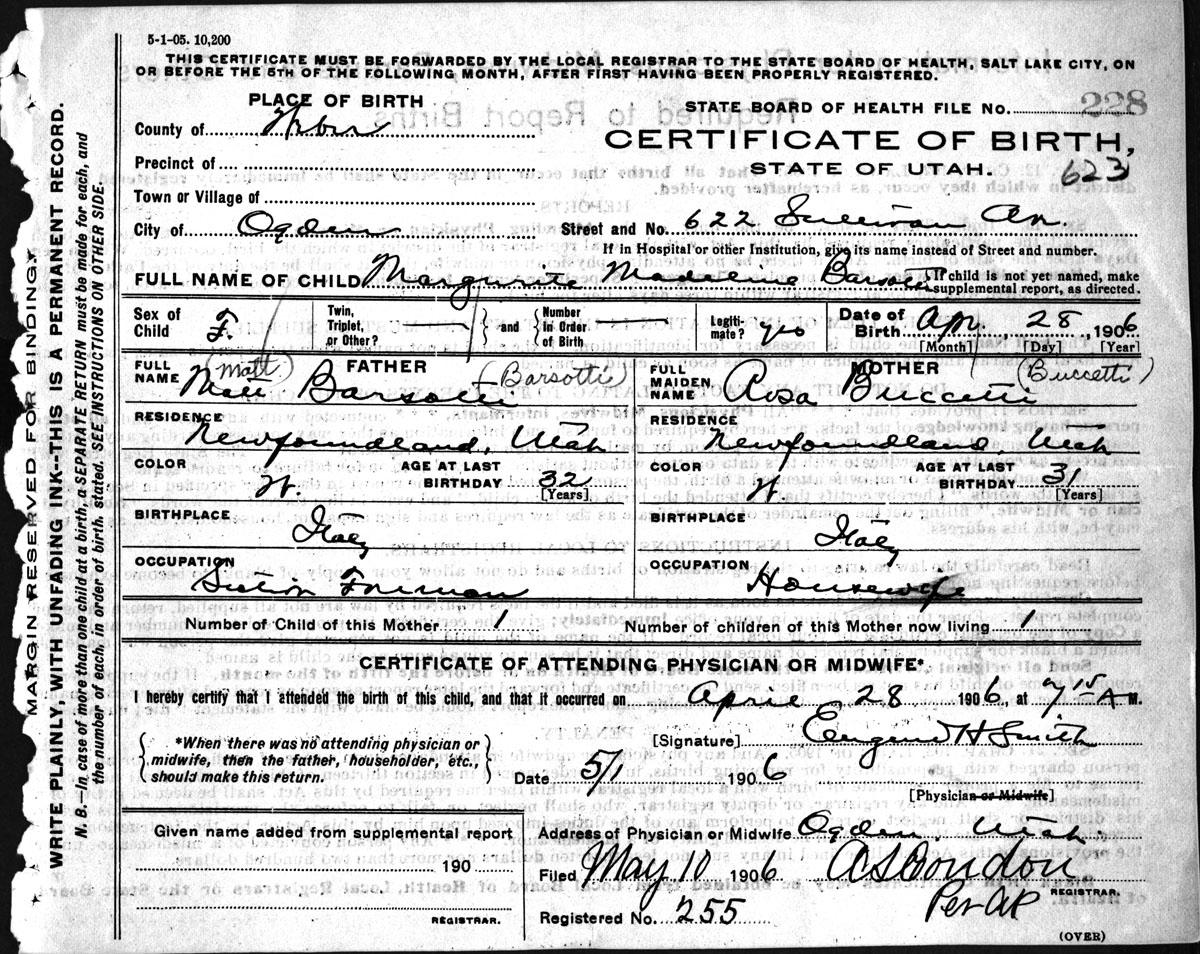 5-1-05. 10,200
THIS CERTIFICATE MUST BE FORWARDED BY THE LOCAL REGISTRAR TO THE STATE BOARD OF HEALTH, SALT LAKE CITY, ON
OR BEFORE THE 5TH OF THE FOLLOWING MONTH, AFTER FIRST HAVING BEEN PROPERLY REGISTERED.
MARGIN RESERVED FOR BINDING.
WRITE PLAINLY, WITH UNFADING INK—THIS IS A PERMANENT RECORD.
N. B.—In case of more than one child at a birth, a SEPARATE RETURN must be made for each, and
the number of each, in order of birth, stated. SEE INSTRUCTIONS ON OTHER SIDE.
PLACE OF BIRTH
STATE BOARD OF HEALTH FILE NO. 228
County of Weber
CERTIFICATE OF BIRTH,
Precinct of
STATE OF UTAH. 623
Town or Village of
City of Ogden Street and No. 622 Sullivan Av.
If in Hospital or other Institution, give its name instead of Street and number.
FULL NAME OF CHILD Margurite Madeline Barsotti [If child is not yet named, make
supplemental report, as directed.
Sex of Child F. Twin, Triplet, or Other? and Number in Order of Birth Legiti-mate? yes Date of Birth Apr. 28 1906
[Month] [Day] [Year]
FULL NAME FATHER (Matt) (Barsotti)
Matt Barsotti
FULL MAIDEN NAME MOTHER (Buccetti)
Rosa Buccetti
RESIDENCE Newfoundland, Utah
RESIDENCE Newfoundland, Utah
COLOR W. AGE AT LAST BIRTHDAY 32 [Years]
COLOR W. AGE AT LAST BIRTHDAY 31 [Years]
BIRTHPLACE Italy
BIRTHPLACE Italy
OCCUPATION Section Foreman
OCCUPATION Housewife
Number of Child of this Mother 1 Number of children of this Mother now living 1
CERTIFICATE OF ATTENDING PHYSICIAN OR MIDWIFE*
I hereby certify that I attended the birth of this child, and that it occurred on April 28 1906, at 7 15 A M.
*When there was no attending physician or
midwife, then the father, householder, etc.,
should make this return.
[Signature] Eugene H Smith
Date 5/1 1906
[Physician or Midwife]
Given name added from supplemental report
190
REGISTRAR.
Address of Physician or Midwife Ogden, Utah.
Filed May 10 1906 A S Condon
REGISTRAR.
Registered No. 255 Per AR
(OVER)